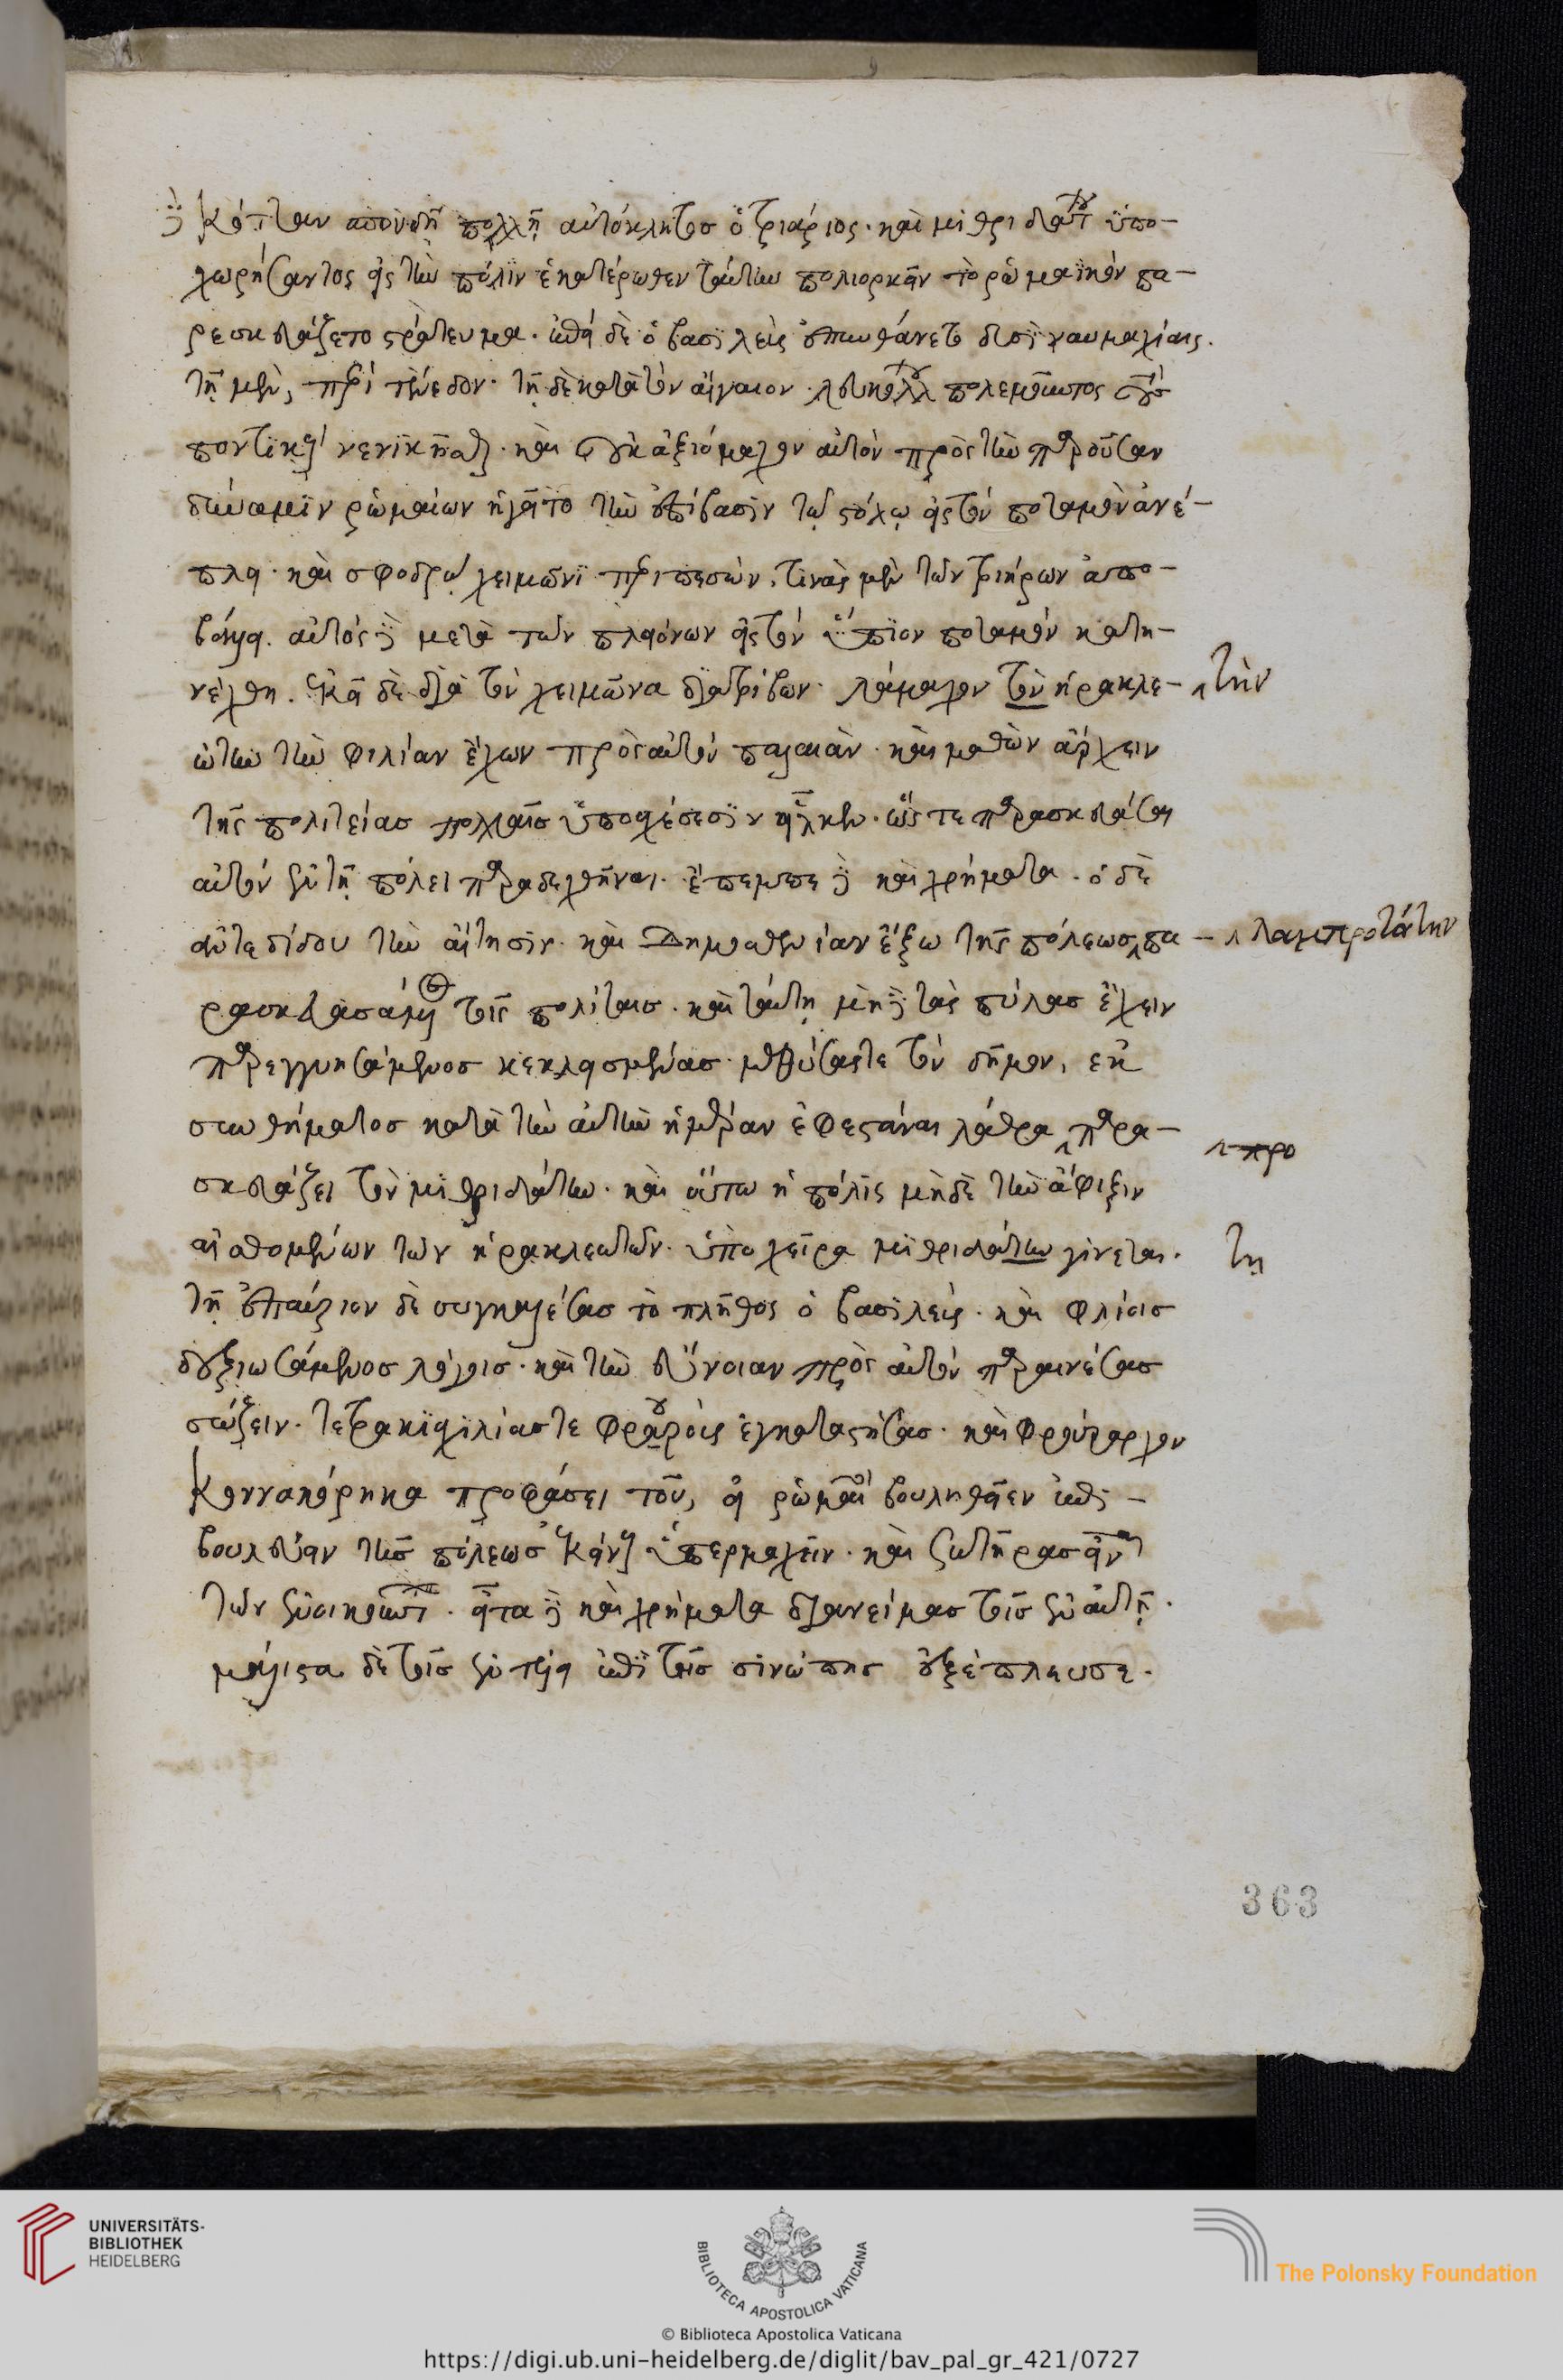 δὲ Κότταν σπουδῇ πολλῇ αὐτόκλητος ὁ τριάριος· καὶ μιθριδάτου ὑπο-
χωρήσαντος εἰς τὴν πόλιν ἑκατέρωθεν ταύτην πολιορκεῖν τὸ ῥωμαϊκὸν πα-
ρεσκευάζετο στράτευμα. ἐπεὶ δὲ ὁ βασιλεὺς ἐπυνθάνετο δυσὶ ναυμαχίαις.
τῇ μὲν, περὶ τένεδον· τῇ δὲ κατὰ τὸν αἰγαιον. λευκόλλου πολεμοῦντος τοὺς
ποντικοὺς νενικῆσθαι. καὶ οὐκ ἀξιόμαχον αὐτὸν πρὸς τὴν παροῦσαν
δύναμιν ῥωμαίων ἡγεῖτο τὴν ἐπίβασιν τῷ στόλῳ εἰς τὸν ποταμὸν ἀνέ-
πλει· καὶ σφοδρῷ χειμῶνι περιπεσὼν, τινὰς μὲν τῶν τριήρων ἀπο-
βάλλει. αὐτὸς δὲ μετὰ τῶν πλειόνων εἰς τὸν ὕπιον ποταμὸν κατη-
νέχθη. ἐκεῖ δὲ διὰ τὸν χειμῶνα διατρίβων· λάμαχον τὸν ἡρακλε-
ώτην τὴν φιλίαν ἔχων πρὸς αὐτὸν παλαιὰν· καὶ μαθὼν ἄρχειν
τῆς πολιτείας πολλαῖς ὑποσχέσεσιν εἷλκεν. ὥστε παρασκευάσαι
αὐτὸν ἐν τῇ πόλει παραδεχθῆναι. ἔπεμπε δὲ καὶ χρήματα. ὁ δὲ
ἀντεδίδου τὴν αἴτησιν. καὶ Δημοθενίαν ἔξω τῆς πόλεως πα-
ρασκευασάμενος τοῖς πολίταις. καὶ ταύτῃ μὴ δὲ τὰς πύλας ἔχειν
παρεγγυησάμενος κεκλεισμένας. μεθύσας τε τὸν δῆμον, ἐκ
συνθήματος κατὰ τὴν αὐτὴν ἡμέραν ἐφεστάναι λάθρα παρα-
σκευάζει τὸν μιθριδάτην. καὶ οὕτω ἡ πόλις μηδὲ τὴν ἄφιξιν
αἰσθομένων τῶν ἡρακλεωτῶν. ὑπο χεῖρα μιθριδάτην γίνεται.
τῇ ἐπαύριον δὲ συγκαλέσας τὸ πλῆθος ὁ βασιλεὺς. καὶ φιλίοις
δεξιωσάμενος λόγοις. καὶ τὴν εὔνοιαν πρὸς αὐτὸν παραινέσας
σώζειν. τετρακισχιλίας τε φρουροὺς ἐγκαταστήσας. καὶ φρούραρχον
Κοννακόρηκα προφάσει τοῦ, εἰ ῥωμαῖοι βουληθεῖεν ἐπι-
βουλεύειν τῆς πόλεως ἐκείνους ὑπερμαχεῖν. καὶ σωτῆρας εἶναι
τῶν ἐνοικούντων. εἶτα δὲ καὶ χρήματα διανείμας τοῖς ἐν αὐτῇ.
μάλιστα δὲ τοῖς ἐν τέλει ἐπὶ τῆς σινώπης ἐξέπλευσε.
τὴν
λαμπροτάτην
προ
τῃ
363
UNIVERSITÄTS-
BIBLIOTHEK
HEIDELBERG
BIBLIOTECA APOSTOLICA VATICANA
The Polonsky Foundation
© Biblioteca Apostolica Vaticana
https://digi.ub.uni-heidelberg.de/diglit/bav_pal_gr_421/0727